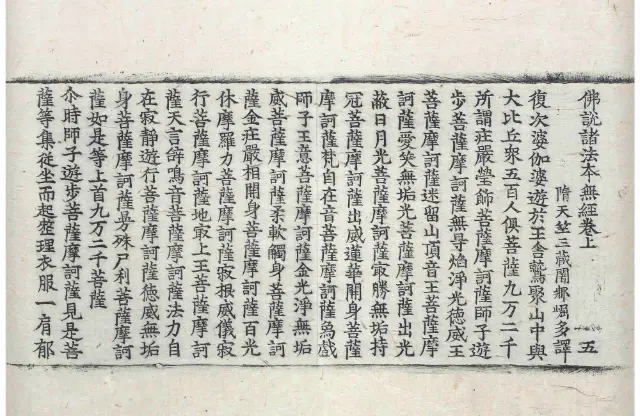 佛說諸法本無經卷上 五
隋天竺三藏闍那崛多譯
復次婆伽婆遊於王舍鷲聚山中與
大比丘眾五百人俱菩薩九万二千
所謂庄嚴瑩飾菩薩摩訶薩師子遊
步菩薩摩訶薩無㝵焰淨光德威王
菩薩摩訶薩迷留山頂音王菩薩摩
訶薩愛笑無垢光菩薩摩訶薩出光
蔽日月光菩薩摩訶薩寂勝無垢持
冠菩薩摩訶薩出威蓮華開身菩薩
摩訶薩梵自在音菩薩摩訶薩為戲
師子王意菩薩摩訶薩金光淨無垢
威菩薩摩訶薩柔軟觸身菩薩摩訶
薩金庄嚴相開身菩薩摩訶薩百光
休摩羅力菩薩摩訶薩寂根威儀寂
行菩薩摩訶薩地寂上王菩薩摩訶
薩天言辝鳴音菩薩摩訶薩法力自
在寂靜遊行菩薩摩訶薩德威無垢
身菩薩摩訶薩曼殊尸利菩薩摩訶
薩如是等上首九万二千菩薩
尒時師子遊步菩薩摩訶薩見是菩
薩等集従坐而起整理衣服一肩郁